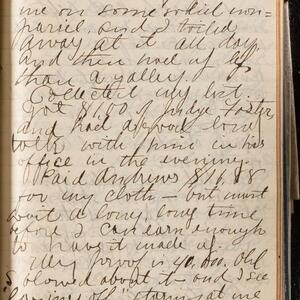 me on some solid non-
pariel, and I toiled
away at it all day
and then had of
than a galley.
Collected my bet.
Got $1.00 of Judge Foster
and had a good long
talk with him in his
office in the evening.
Paid Andrews $16.88
for my cloth - but must
wait a long, long time
before I can earn enough
to have it made up.
My proof is
about it - and I see
"old" at me